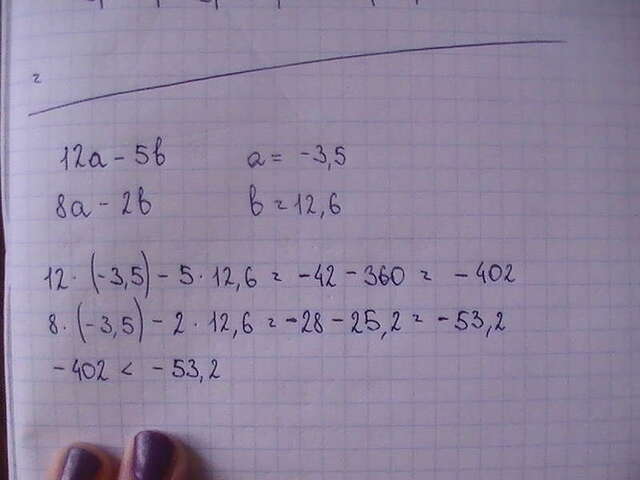 12a - 5b a = -3,5
8a - 2b b = 12,6
12 · (-3,5) - 5 · 12,6 = -42 - 360 = -402
8 · (-3,5) - 2 · 12,6 = -28 - 25,2 = -53,2
-402 < -53,2